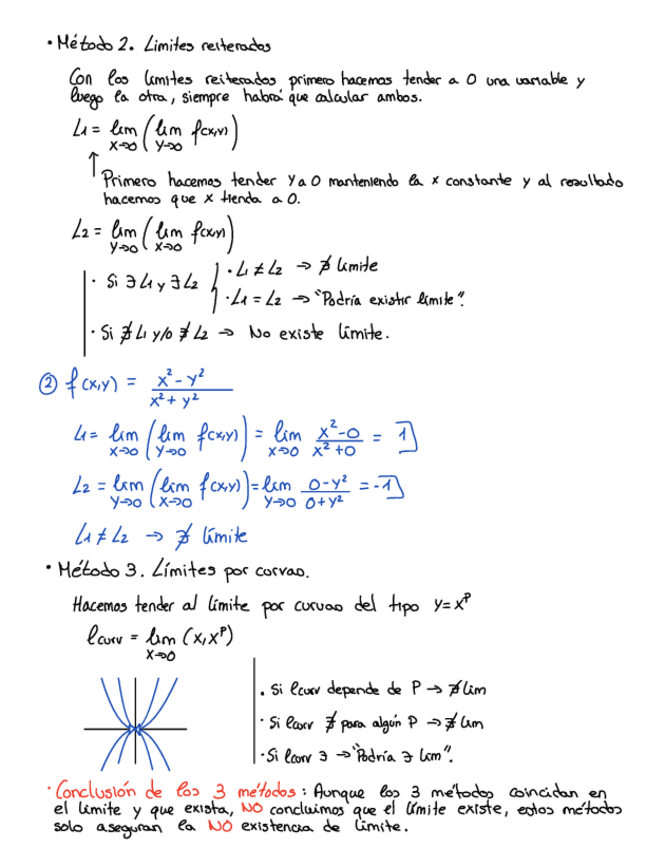 · Método 2. Limites reiterados
Con los límites reiterados primero hacemos tender a 0 una variable y
luego la otra, siempre habrá que calcular ambos.
L₁ = lim x→0 ( lim y→0 f(x,y) )
↑ Primero hacemos tender y a 0 manteniendo la x constante y al resultado
hacemos que x tienda a 0.
L₂ = lim y→0 ( lim x→0 f(x,y) )
· Si ∃ L₁ y ∃ L₂ { · L₁ ≠ L₂ → ∄ límite
· L₁ = L₂ → "Podría existir límite".
· Si ∄ L₁ y/o ∄ L₂ → No existe límite.
② f(x,y) = (x² - y²)/(x² + y²)
L₁ = lim x→0 ( lim y→0 f(x,y) ) = lim x→0 (x² - 0)/(x² + 0) = 1
L₂ = lim y→0 ( lim x→0 f(x,y) ) = lim y→0 (0 - y²)/(0 + y²) = -1
L₁ ≠ L₂ → ∄ límite
· Método 3. Límites por curvas.
Hacemos tender al límite por curvas del tipo y = xᴾ
lcurv = lim x→0 (x, xᴾ)
· Si lcurv depende de P → ∄ lim
· Si lcurv ∄ para algún P → ∄ lim
· Si lcurv ∃ → "Podría ∃ lim".
· Conclusión de los 3 métodos: Aunque los 3 métodos coincidan en
el límite y que exista, NO concluimos que el límite existe, estos métodos
solo aseguran la NO existencia de límite.